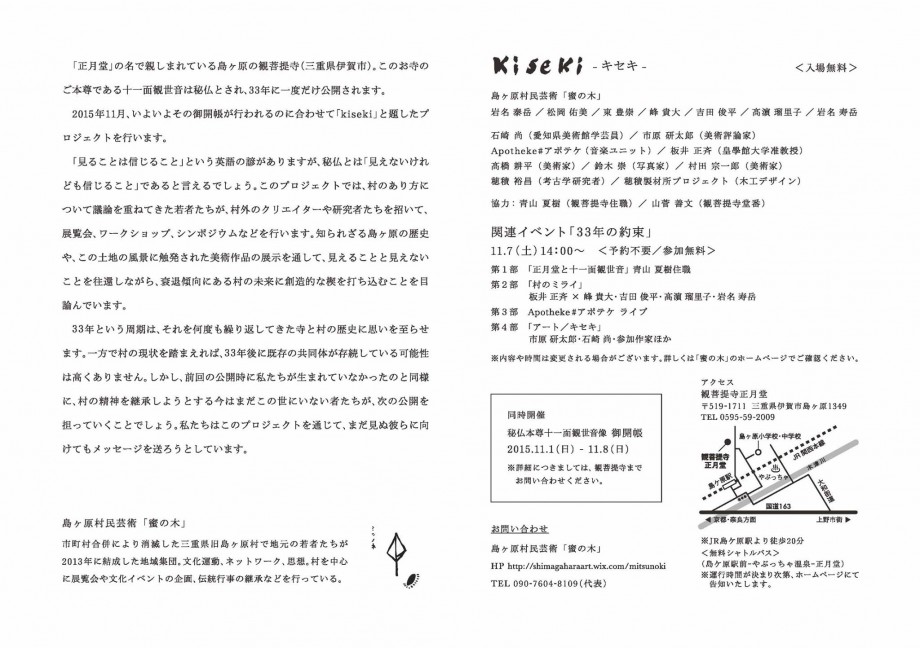 「正月堂」の名で親しまれている島ヶ原の観菩提寺（三重県伊賀市）。このお寺の
ご本尊である十一面観世音は秘仏とされ、33年に一度だけ公開されます。
2015年11月、いよいよその御開帳が行われるのに合わせて「kiseki」と題したプ
ロジェクトを行います。
「見ることは信じること」という英語の諺がありますが、秘仏とは「見えないけれ
ども信じること」であると言えるでしょう。このプロジェクトでは、村のあり方に
ついて議論を重ねてきた若者たちが、村外のクリエイターや研究者たちを招いて、
展覧会、ワークショップ、シンポジウムなどを行います。知られざる島ヶ原の歴史
や、この土地の風景に触発された美術作品の展示を通して、見えることと見えない
ことを往還しながら、衰退傾向にある村の未来に創造的な楔を打ち込むことを目
論んでいます。
33年という周期は、それを何度も繰り返してきた寺と村の歴史に思いを至らせ
ます。一方で村の現状を踏まえれば、33年後に既存の共同体が存続している可能性
は高くありません。しかし、前回の公開時に私たちが生まれていなかったのと同様
に、村の精神を継承しようとする今はまだこの世にいない者たちが、次の公開を
担っていくことでしょう。私たちはこのプロジェクトを通じて、まだ見ぬ彼らに向
けてもメッセージを送ろうとしています。
島ヶ原村民芸術「蜜の木」
市町村合併により消滅した三重県旧島ヶ原村で地元の若者たちが
2013年に結成した地域集団。文化運動、ネットワーク、思想。村を中心
に展覧会や文化イベントの企画、伝統行事の継承などを行っている。
みつの木
kiseki - キセキ -
＜入場無料＞
島ヶ原村民芸術「蜜の木」
岩名 泰岳 ／ 松岡 佑美 ／ 東 豊崇 ／ 峰 貴大 ／ 吉田 俊平 ／ 高濵 瑠里子 ／ 岩名 寿岳
石崎 尚（愛知県美術館学芸員）／ 市原 研太郎（美術評論家）
Apotheke#アポテケ（音楽ユニット）／ 板井 正斉（皇學館大学准教授）
高橋 耕平（美術家）／ 鈴木 崇（写真家）／ 村田 宗一郎（美術家）
穂積 裕昌（考古学研究者）／ 穂積製材所プロジェクト（木工デザイン）
協力：青山 夏樹（観菩提寺住職）／ 山菅 善文（観菩提寺堂番）
関連イベント「33年の約束」
11.7（土）14:00〜 ＜予約不要／参加無料＞
第１部 「正月堂と十一面観世音」青山 夏樹住職
第２部 「村のミライ」
板井 正斉 × 峰 貴大・吉田 俊平・高濵 瑠里子・岩名 寿岳
第３部 Apotheke#アポテケ ライブ
第４部 「アート／キセキ」
市原 研太郎・石崎 尚・参加作家ほか
※内容や時間は変更される場合がございます。詳しくは「蜜の木」のホームページでご確認ください。
同時開催
秘仏本尊十一面観世音像 御開帳
2015.11.1（日）- 11.8（日）
※詳細につきましては、観菩提寺まで
お問い合わせください。
お問い合わせ
島ヶ原村民芸術「蜜の木」
HP http://shimagaharaart.wix.com/mitsunoki
TEL 090-7604-8109（代表）
アクセス
観菩提寺正月堂
〒519-1711 三重県伊賀市島ヶ原1349
TEL 0595-59-2009
島ヶ原小学校・中学校
観菩提寺
正月堂
JR関西本線
木津川
島ケ原駅
やぶっちゃ
大和街道
国道163
◀京都・奈良方面
上野市街▶
※JR島ケ原駅より徒歩20分
＜無料シャトルバス＞
（島ケ原駅前-やぶっちゃ温泉-正月堂）
※運行時間が決まり次第、ホームページにて
告知いたします。